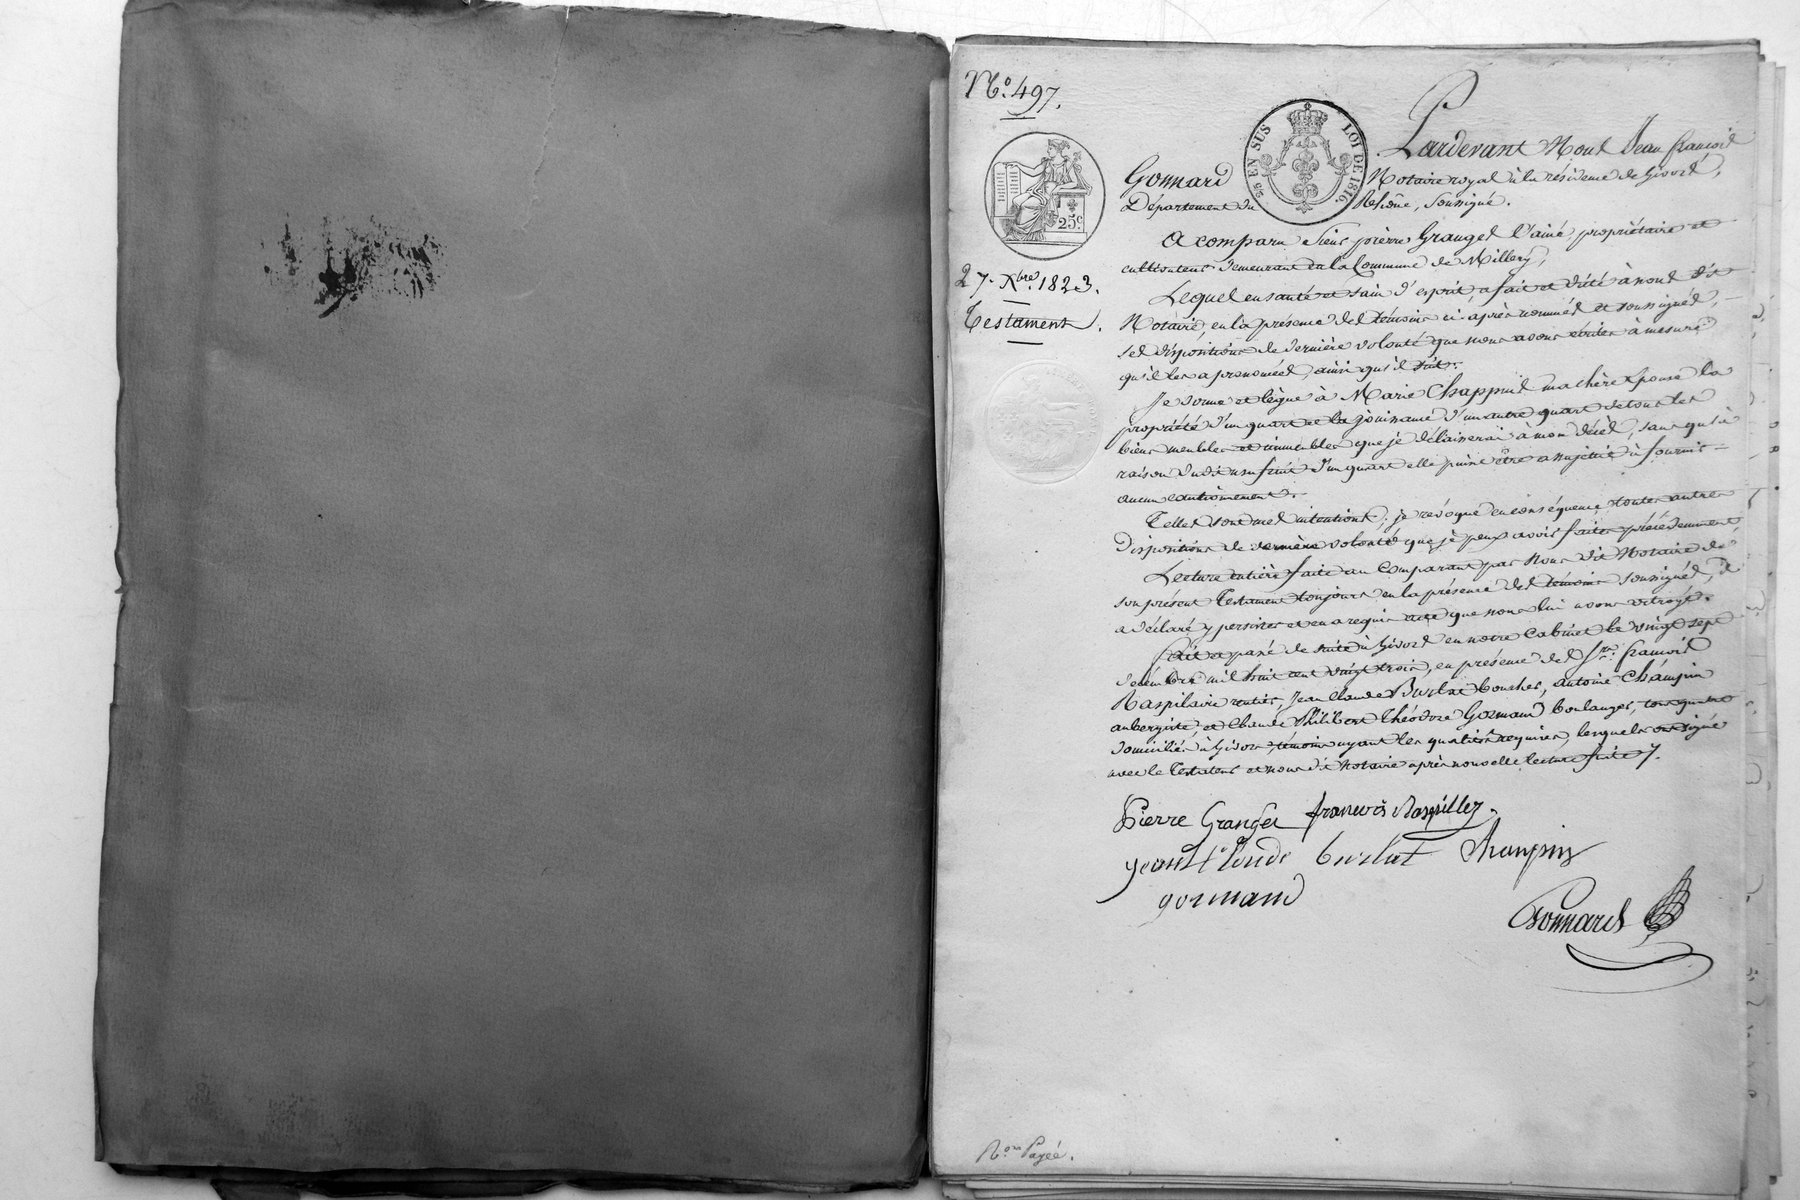 N.o 497.
Pardevant Nous Jean françois
25 EN SUS
LOI DE 1816
Gonnard Notaire royal à la résidence de Givors,
Département du Rhône, soussigné.
25c
A comparu Sieur pierre Granger l'ainé, propriétaire et
cultivateur demeurant en la Commune de Millery,
27. Xbre. 1823.
Lequel en santé et sain d'esprit, a fait et dicté à nous dit
Testament.
Notaire, en la présence des témoins ci-après nommés et soussignés,
ses dispositions de dernière volonté que nous avons écrites à mesure
qu'il les a prononcées, ainsi qu'il suit:
Je donne et lègue à Marie Chappuis ma chère Épouse la
propriété d'un quart et la jouissance d'un autre quart de tous les
biens meubles et immeubles que je délaisserai à mon décès, sans qu'à
raison dudit usufruit d'un quart elle puisse être assujettie à fournir
aucun cautionnement.
Telles sont mes intentions; je révoque en conséquence toutes autres
Dispositions de dernière volonté que je peux avoir faites précédemment,
Lecture entière faite au Comparant par Nous dit Notaire de
son présent Testament toujours en la présence des témoins soussignés, il
a déclaré y persister et en a requis acte que nous lui avons octroyé.
fait et passé de suite à Givors en notre Cabinet le vingt sept
décembre mil huit cent vingt trois, en présence des Srs. françois
Raspilaire rentier, Jean Claude Burlat boucher, antoine Champin
aubergiste, et Claude Philibert Théodore Gormand boulanger, tous quatre
domiciliés à Givors, témoins ayant les qualités requises, lesquels ont signé
avec le Testateur et nous dit Notaire après nouvelle lecture faite
Pierre Granger françois Raspiller
jean Claude burlat Champin
gormand
Gonnard
Payée.